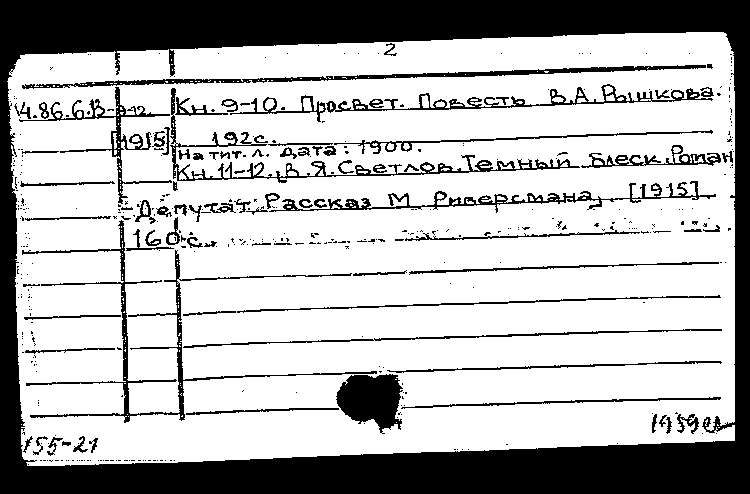 2
Кн. 9-10. Просвет. Повесть В.А. Рышкова.
[1915] 192 с.
На тит. л. дата: 1900.
Кн. 11-12. В.Я. Светлов. Темный блеск. Роман
-Депутат. Рассказ М. Риверсмана, [1915]
160 с.
155-21